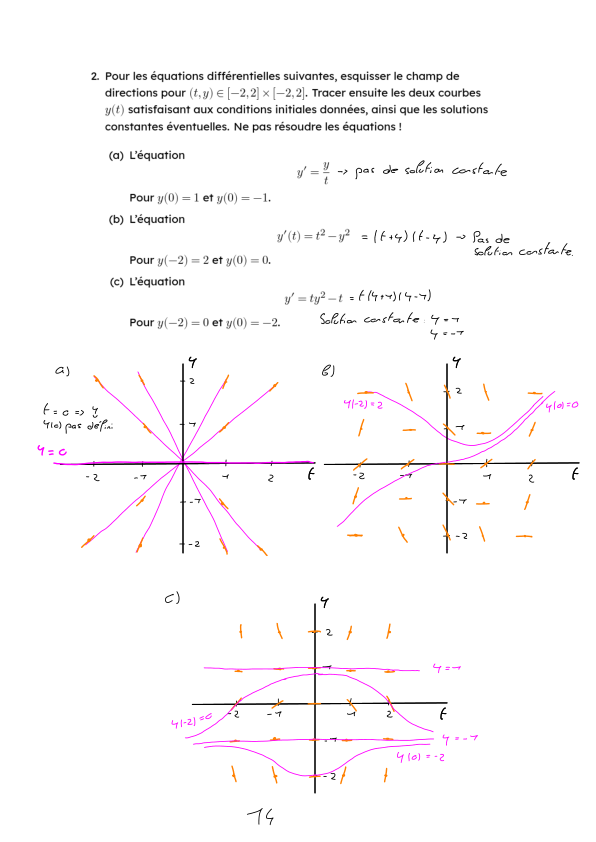 2. Pour les équations différentielles suivantes, esquisser le champ de
directions pour (t, y) ∈ [−2, 2] × [−2, 2]. Tracer ensuite les deux courbes
y(t) satisfaisant aux conditions initiales données, ainsi que les solutions
constantes éventuelles. Ne pas résoudre les équations !
(a) L'équation
y′ = y/t -> pas de solution constante
Pour y(0) = 1 et y(0) = −1.
(b) L'équation
y′(t) = t² − y² = (t+y)(t-y) -> Pas de
solution constante.
Pour y(−2) = 2 et y(0) = 0.
(c) L'équation
y′ = ty² − t = t(y+1)(y-1)
Pour y(−2) = 0 et y(0) = −2. Solution constante : y = 1
y = -1
a)
y
2
t = 0 => y
y(0) pas défini
1
y = 0
-2 -1 1 2 t
-1
-2
b)
y
2
y(-2) = 2
y(0) = 0
1
-2 -1 1 2 t
-1
-2
c)
y
2
1
y = 1
-2 -1 1 2 t
y(-2) = 0
-1
y = -1
y(0) = -2
-2
14